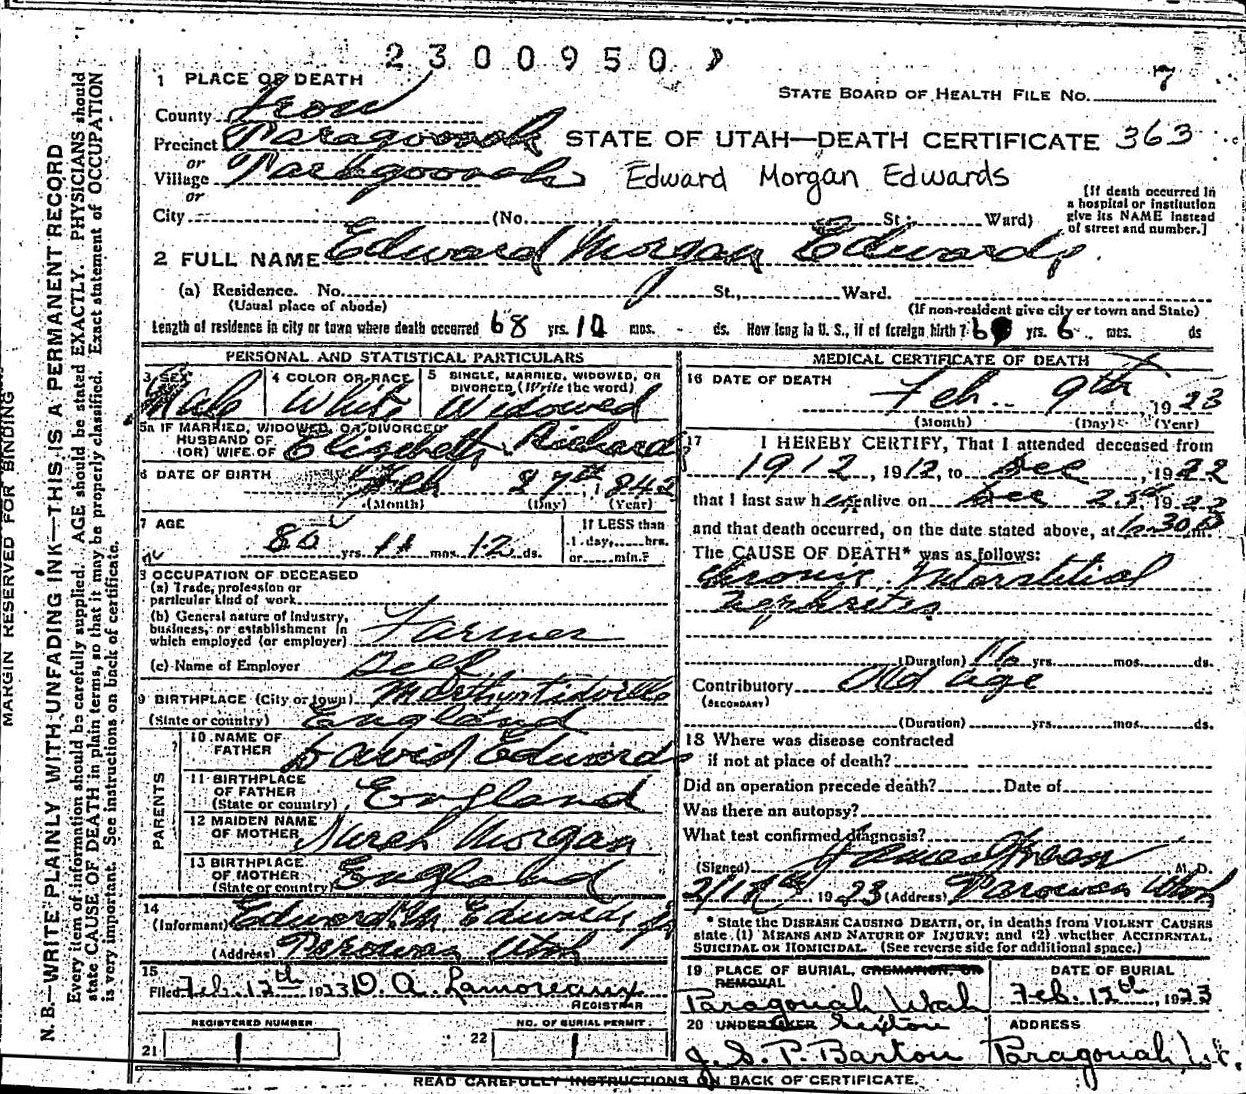 2300950
1 PLACE OF DEATH
STATE BOARD OF HEALTH FILE NO. 7
County Iron
Precinct Paragoonah STATE OF UTAH—DEATH CERTIFICATE 363
or
Village Paragoonah Edward Morgan Edwards
or
City (No. St.; Ward)
[If death occurred in
a hospital or institution
give its NAME instead
of street and number.]
2 FULL NAME Edward Morgan Edwards
(a) Residence. No. St., Ward.
(Usual place of abode) (If non-resident give city or town and State)
Length of residence in city or town where death occurred 68 yrs. 10 mos. ds. How long in U. S., if of foreign birth? yrs. 6 mos. ds
PERSONAL AND STATISTICAL PARTICULARS
3 SEX 4 COLOR OR RACE 5 SINGLE, MARRIED, WIDOWED, OR
DIVORCED (Write the word)
Male White Widowed
5a IF MARRIED, WIDOWED, OR DIVORCED
HUSBAND OF
(OR) WIFE OF Elizabeth Richard
6 DATE OF BIRTH Feb 27th, 1842
(Month) (Day) (Year)
7 AGE
80 yrs. 11 mos. 12 ds.
If LESS than
1 day, hrs.
or min.?
8 OCCUPATION OF DECEASED
(a) Trade, profession or
particular kind of work
(b) General nature of Industry,
business, or establishment in
which employed (or employer) Farmer
(c) Name of Employer Self
9 BIRTHPLACE (City or town)
(State or country) England
PARENTS
10 NAME OF
FATHER David Edwards
11 BIRTHPLACE
OF FATHER
(State or country) England
12 MAIDEN NAME
OF MOTHER Sarah Morgan
13 BIRTHPLACE
OF MOTHER
(State or country) England
14
(Informant) Edward M Edwards Jr
(Address) Parowan Utah
15
Filed Feb. 12th 1923 D. A. Lamoreaux
REGISTRAR
REGISTERED NUMBER NO. OF BURIAL PERMIT
21 22
MEDICAL CERTIFICATE OF DEATH
16 DATE OF DEATH
Feb. 9th 1923
(Month) (Day) (Year)
17 I HEREBY CERTIFY, That I attended deceased from
1912, 1912, to Dec, 1922
that I last saw h alive on Dec 25th 1922
and that death occurred, on the date stated above, at 6.30 P m.
The CAUSE OF DEATH* was as follows:
Chronic Interstitial
Nephretes
(Duration) yrs. mos. ds.
Contributory Old age
(SECONDARY)
(Duration) yrs. mos. ds.
18 Where was disease contracted
if not at place of death?
Did an operation precede death? Date of
Was there an autopsy?
What test confirmed diagnosis?
(Signed) James Green M. D.
1923 (Address) Parowan Utah
* State the DISEASE CAUSING DEATH, or, in deaths from VIOLENT CAUSES
state (1) MEANS AND NATURE OF INJURY; and (2) whether ACCIDENTAL,
SUICIDAL OR HOMICIDAL. (See reverse side for additional space.)
19 PLACE OF BURIAL, CREMATION, OR
REMOVAL
Paragonah Utah
DATE OF BURIAL
Feb. 12th, 1923
20 UNDERTAKER Sexton
J. S. P. Barton
ADDRESS
Paragonah, Ut.
READ CAREFULLY INSTRUCTIONS ON BACK OF CERTIFICATE.
MARGIN RESERVED FOR BINDING
N. B.—WRITE PLAINLY WITH UNFADING INK—THIS IS A PERMANENT RECORD
Every item of information should be carefully supplied. AGE should be stated EXACTLY. PHYSICIANS should
state CAUSE OF DEATH in plain terms, so that it may be properly classified. Exact statement of OCCUPATION
is very important. See instructions on back of certificate.